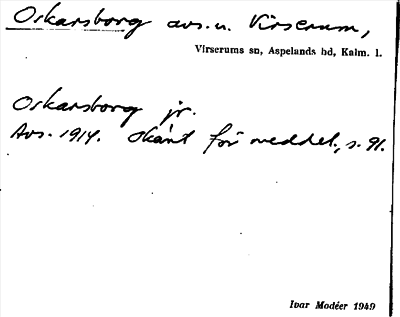 Oskarsborg avs. u. Virserum,
Virserums sn, Aspelands hd, Kalm. l.
Oskarsborg jr.
Avs. 1914. Okänt för meddel., s. 91.
Ivar Modéer 1949